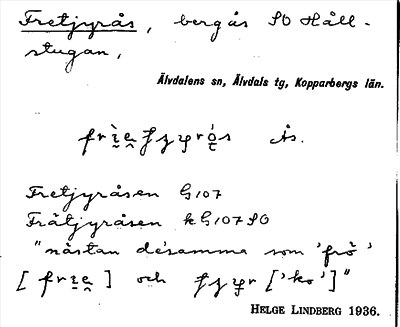 Fretjyrås, bergås SO Håll-
stugan,
Älvdalens sn, Älvdals tg, Kopparbergs län.
ås.
Fretjyråsen G107
Frätjyråsen kG107SO
"nästan desamma som 'frö'
[ ] och ['ko']"
HELGE LINDBERG 1936.